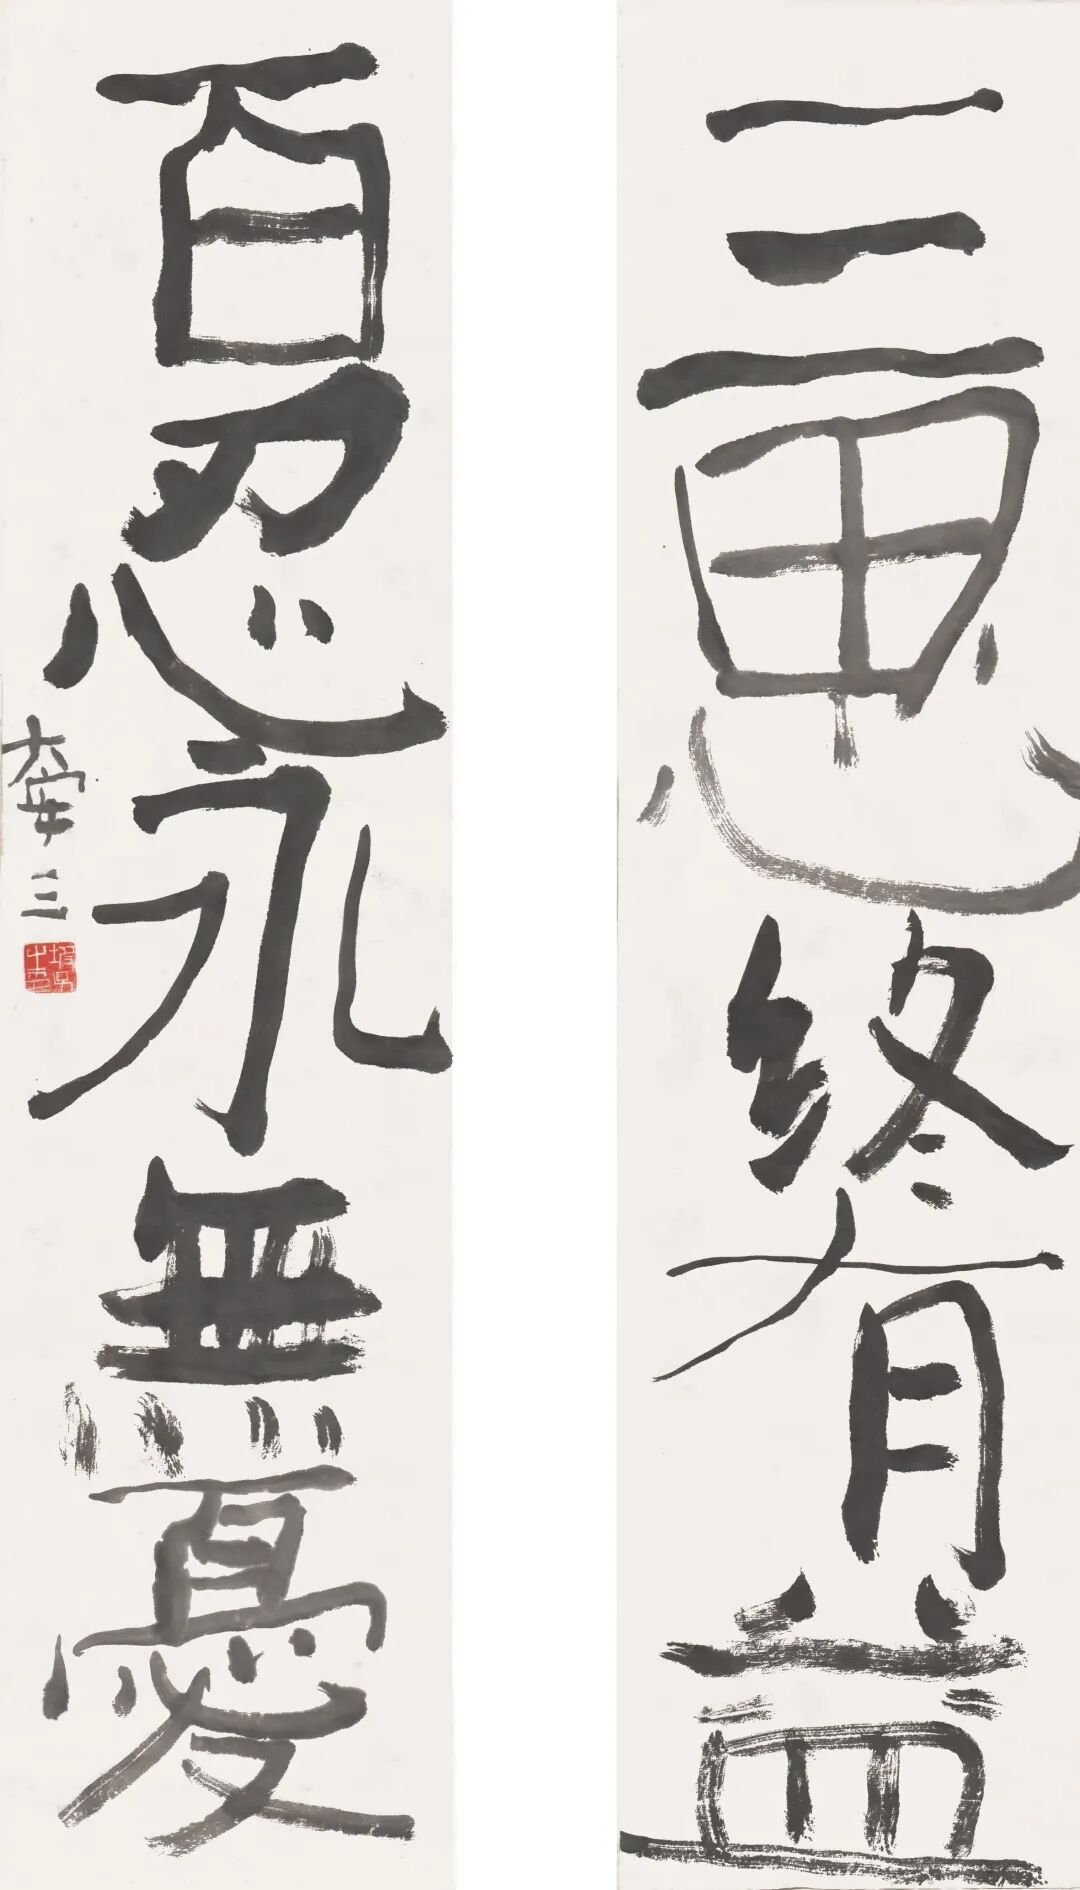 三思終有益
百忍永無憂